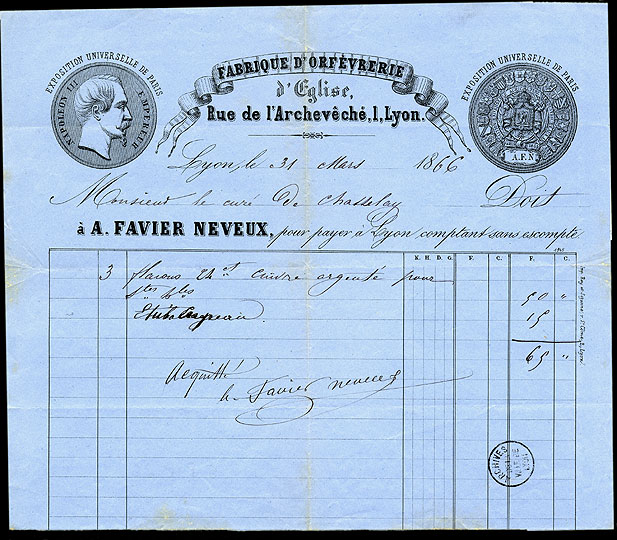 EXPOSITION UNIVERSELLE DE PARIS
NAPOLEON III EMPEREUR
FABRIQUE D'ORFÉVRERIE
d'Eglise,
Rue de l'Archevêché, 1, Lyon.
EXPOSITION UNIVERSELLE DE PARIS
A.F.N.
Lyon, le 31 Mars 1866
Monsieur le curé de Chasselay Doit
à A. FAVIER NEVEUX, pour payer à Lyon comptant sans escompte
K. H. D. G. F. C. F. C.
3 flacons cuivre argenté pour
50 "
15
65 "
Acquitté
Favier neveux
ARCHIVES